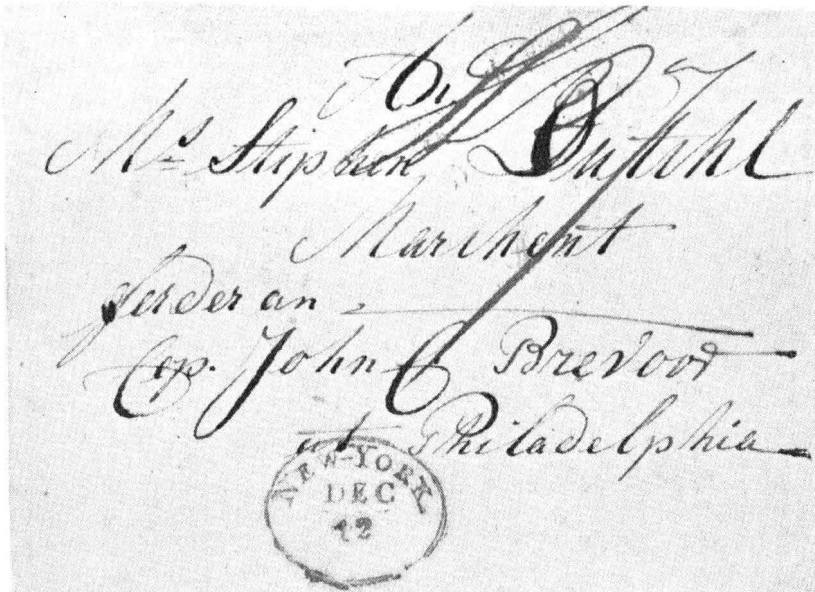 To
Mrs Stiphen Dutihl
Marchent
ferder an
Cap. John C Brevoor
at Philadelphia
NEW-YORK
DEC
12